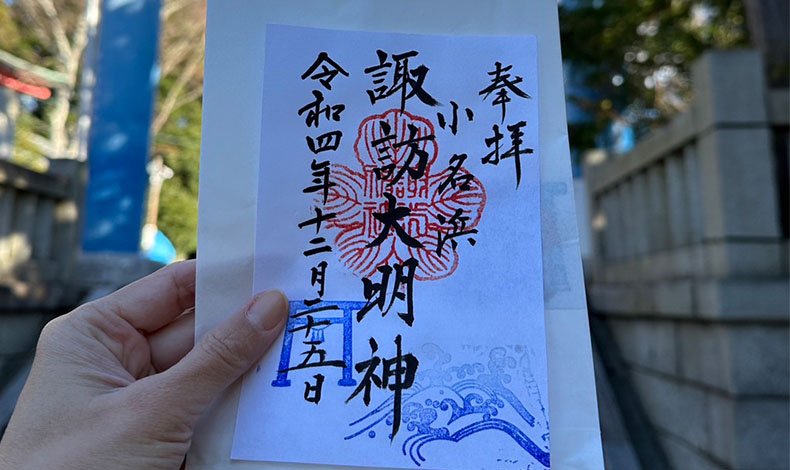 奉拝
小名浜
諏訪大明神
令和四年十二月二十五日